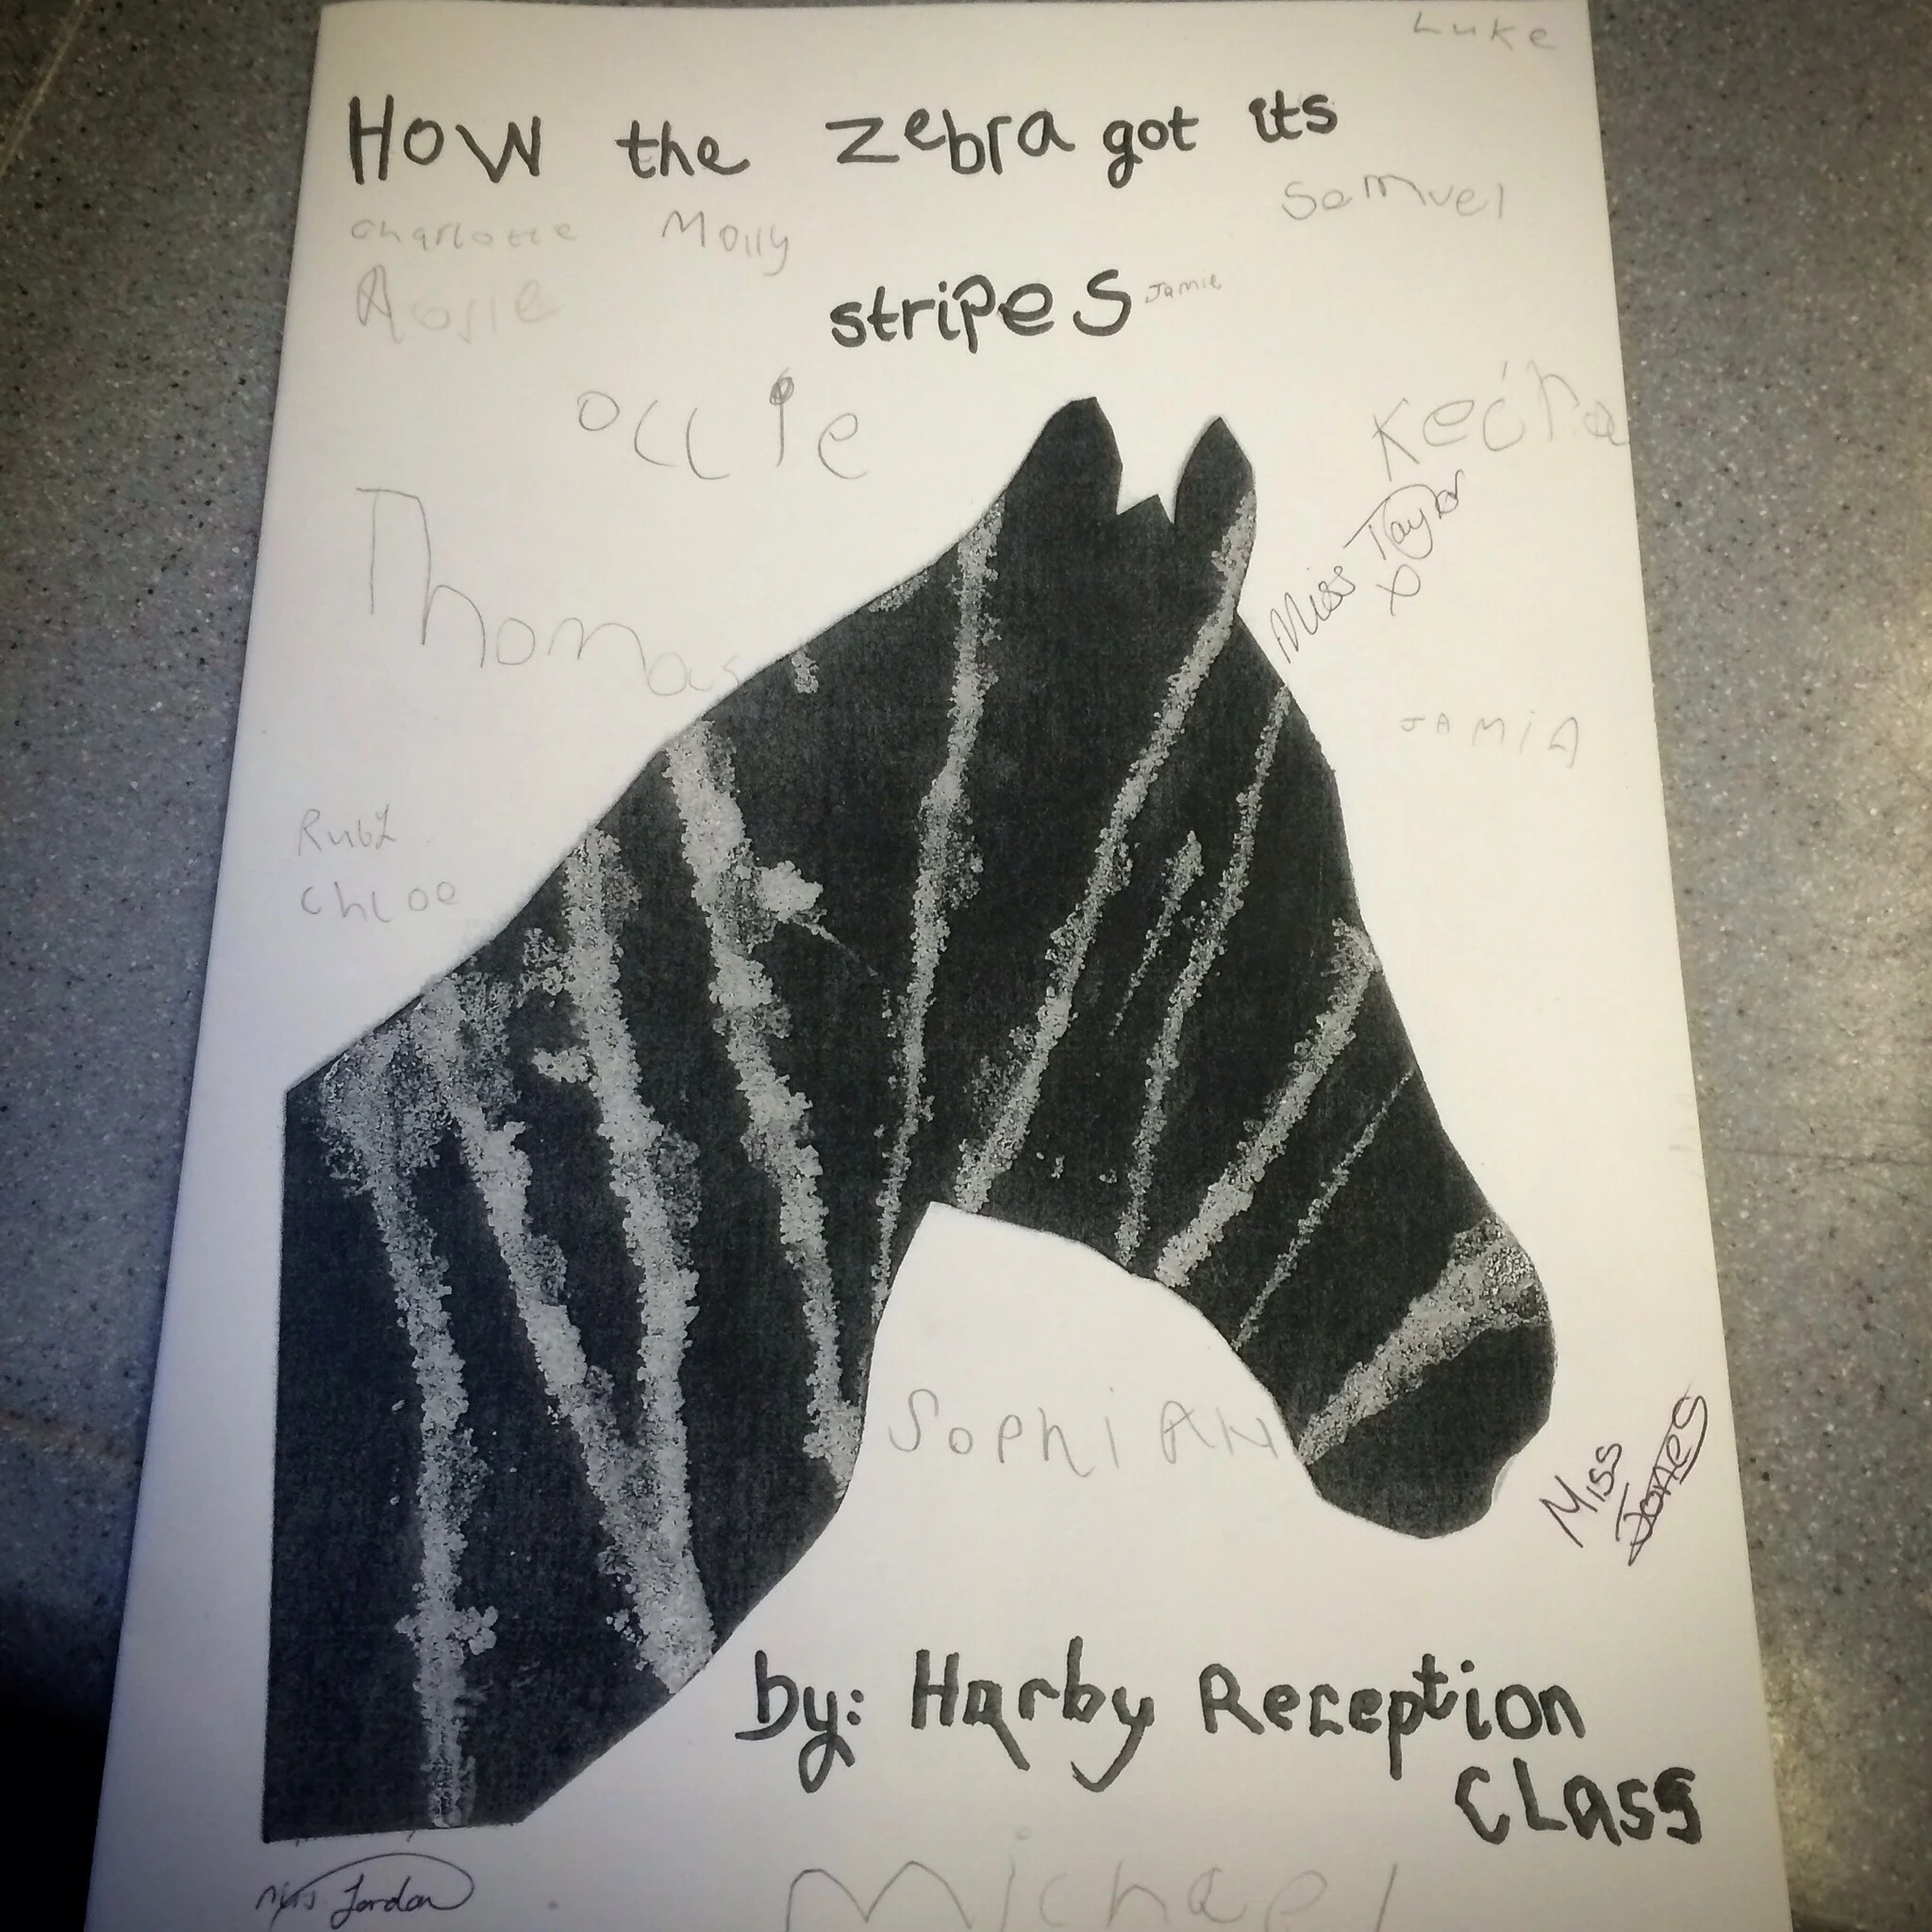 Luke
How the zebra got its
Samuel
Charlotte Molly
stripes
Jamie
Ollie
Thomas
Miss Taylor
x
JAMiA
Ruby
Chloe
SophiAN
Miss
Jones
by: Harby Reception
Class
Mrs Jordan
Michael